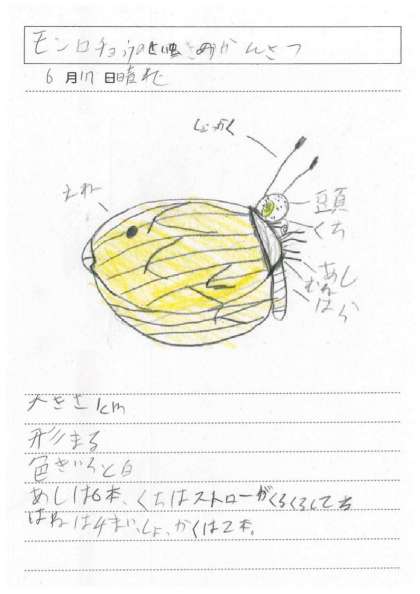 モンロチョウのせい虫のかんさつ
6月17日晴れ
しょかく
えね
頭
くち
あし
むね
はら
大きさ1cm
形まる
色きいろと白
あしは6本、くちはストローがくるくるしてる
はねは4まい、しょかくは2本。